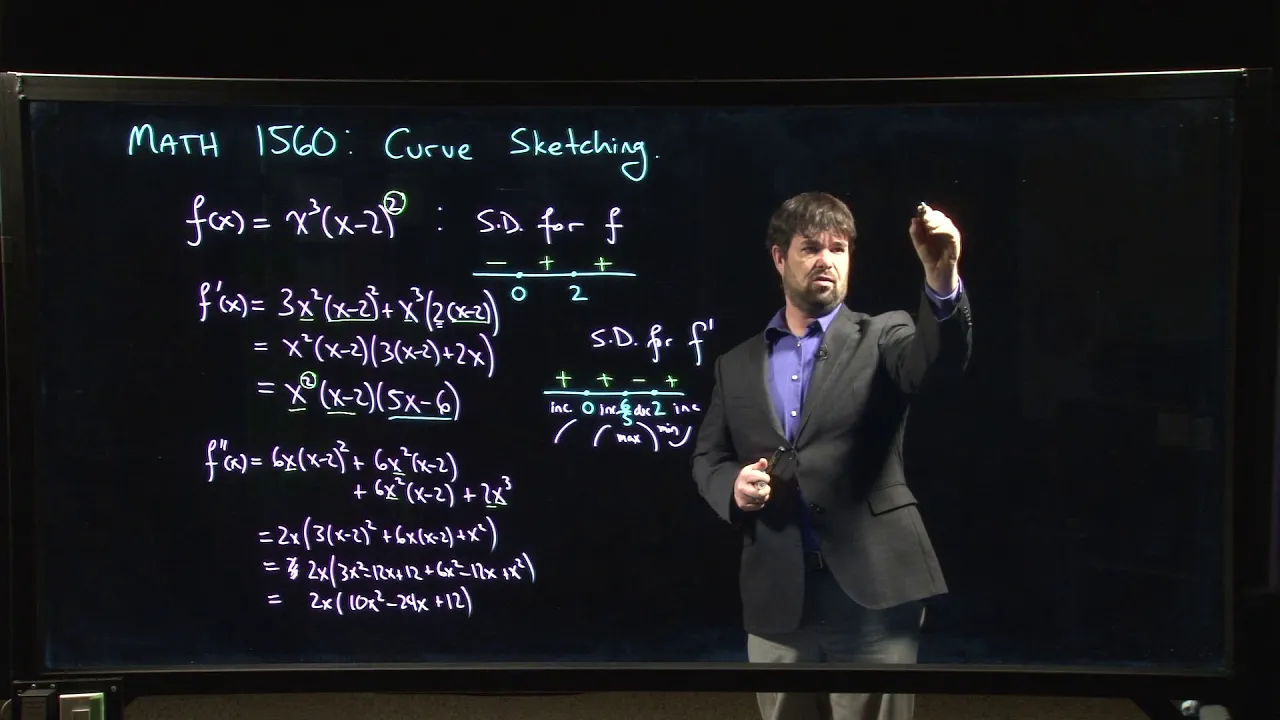 MATH 1560: Curve Sketching.
f(x) = x³(x-2)² : S.D. for f
− + +
0 2
f'(x) = 3x²(x-2)² + x³(2(x-2))
= x²(x-2)(3(x-2)+2x)
= x²(x-2)(5x-6)
S.D. for f'
+ + − +
inc 0 inc 6/5 dec 2 inc
max min
f''(x) = 6x(x-2)² + 6x²(x-2)
+ 6x²(x-2) + 2x³
= 2x(3(x-2)² + 6x(x-2) + x²)
= 2x(3x²-12x+12+6x²-12x+x²)
= 2x(10x²-24x+12)